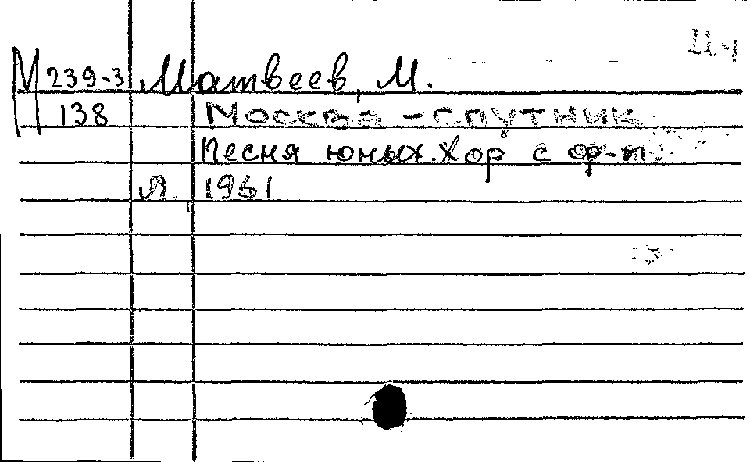 М 239-3 Матвеев, М.
138 Москва - спутник
Песня юных. Хор с ф-п.
Л. 1961